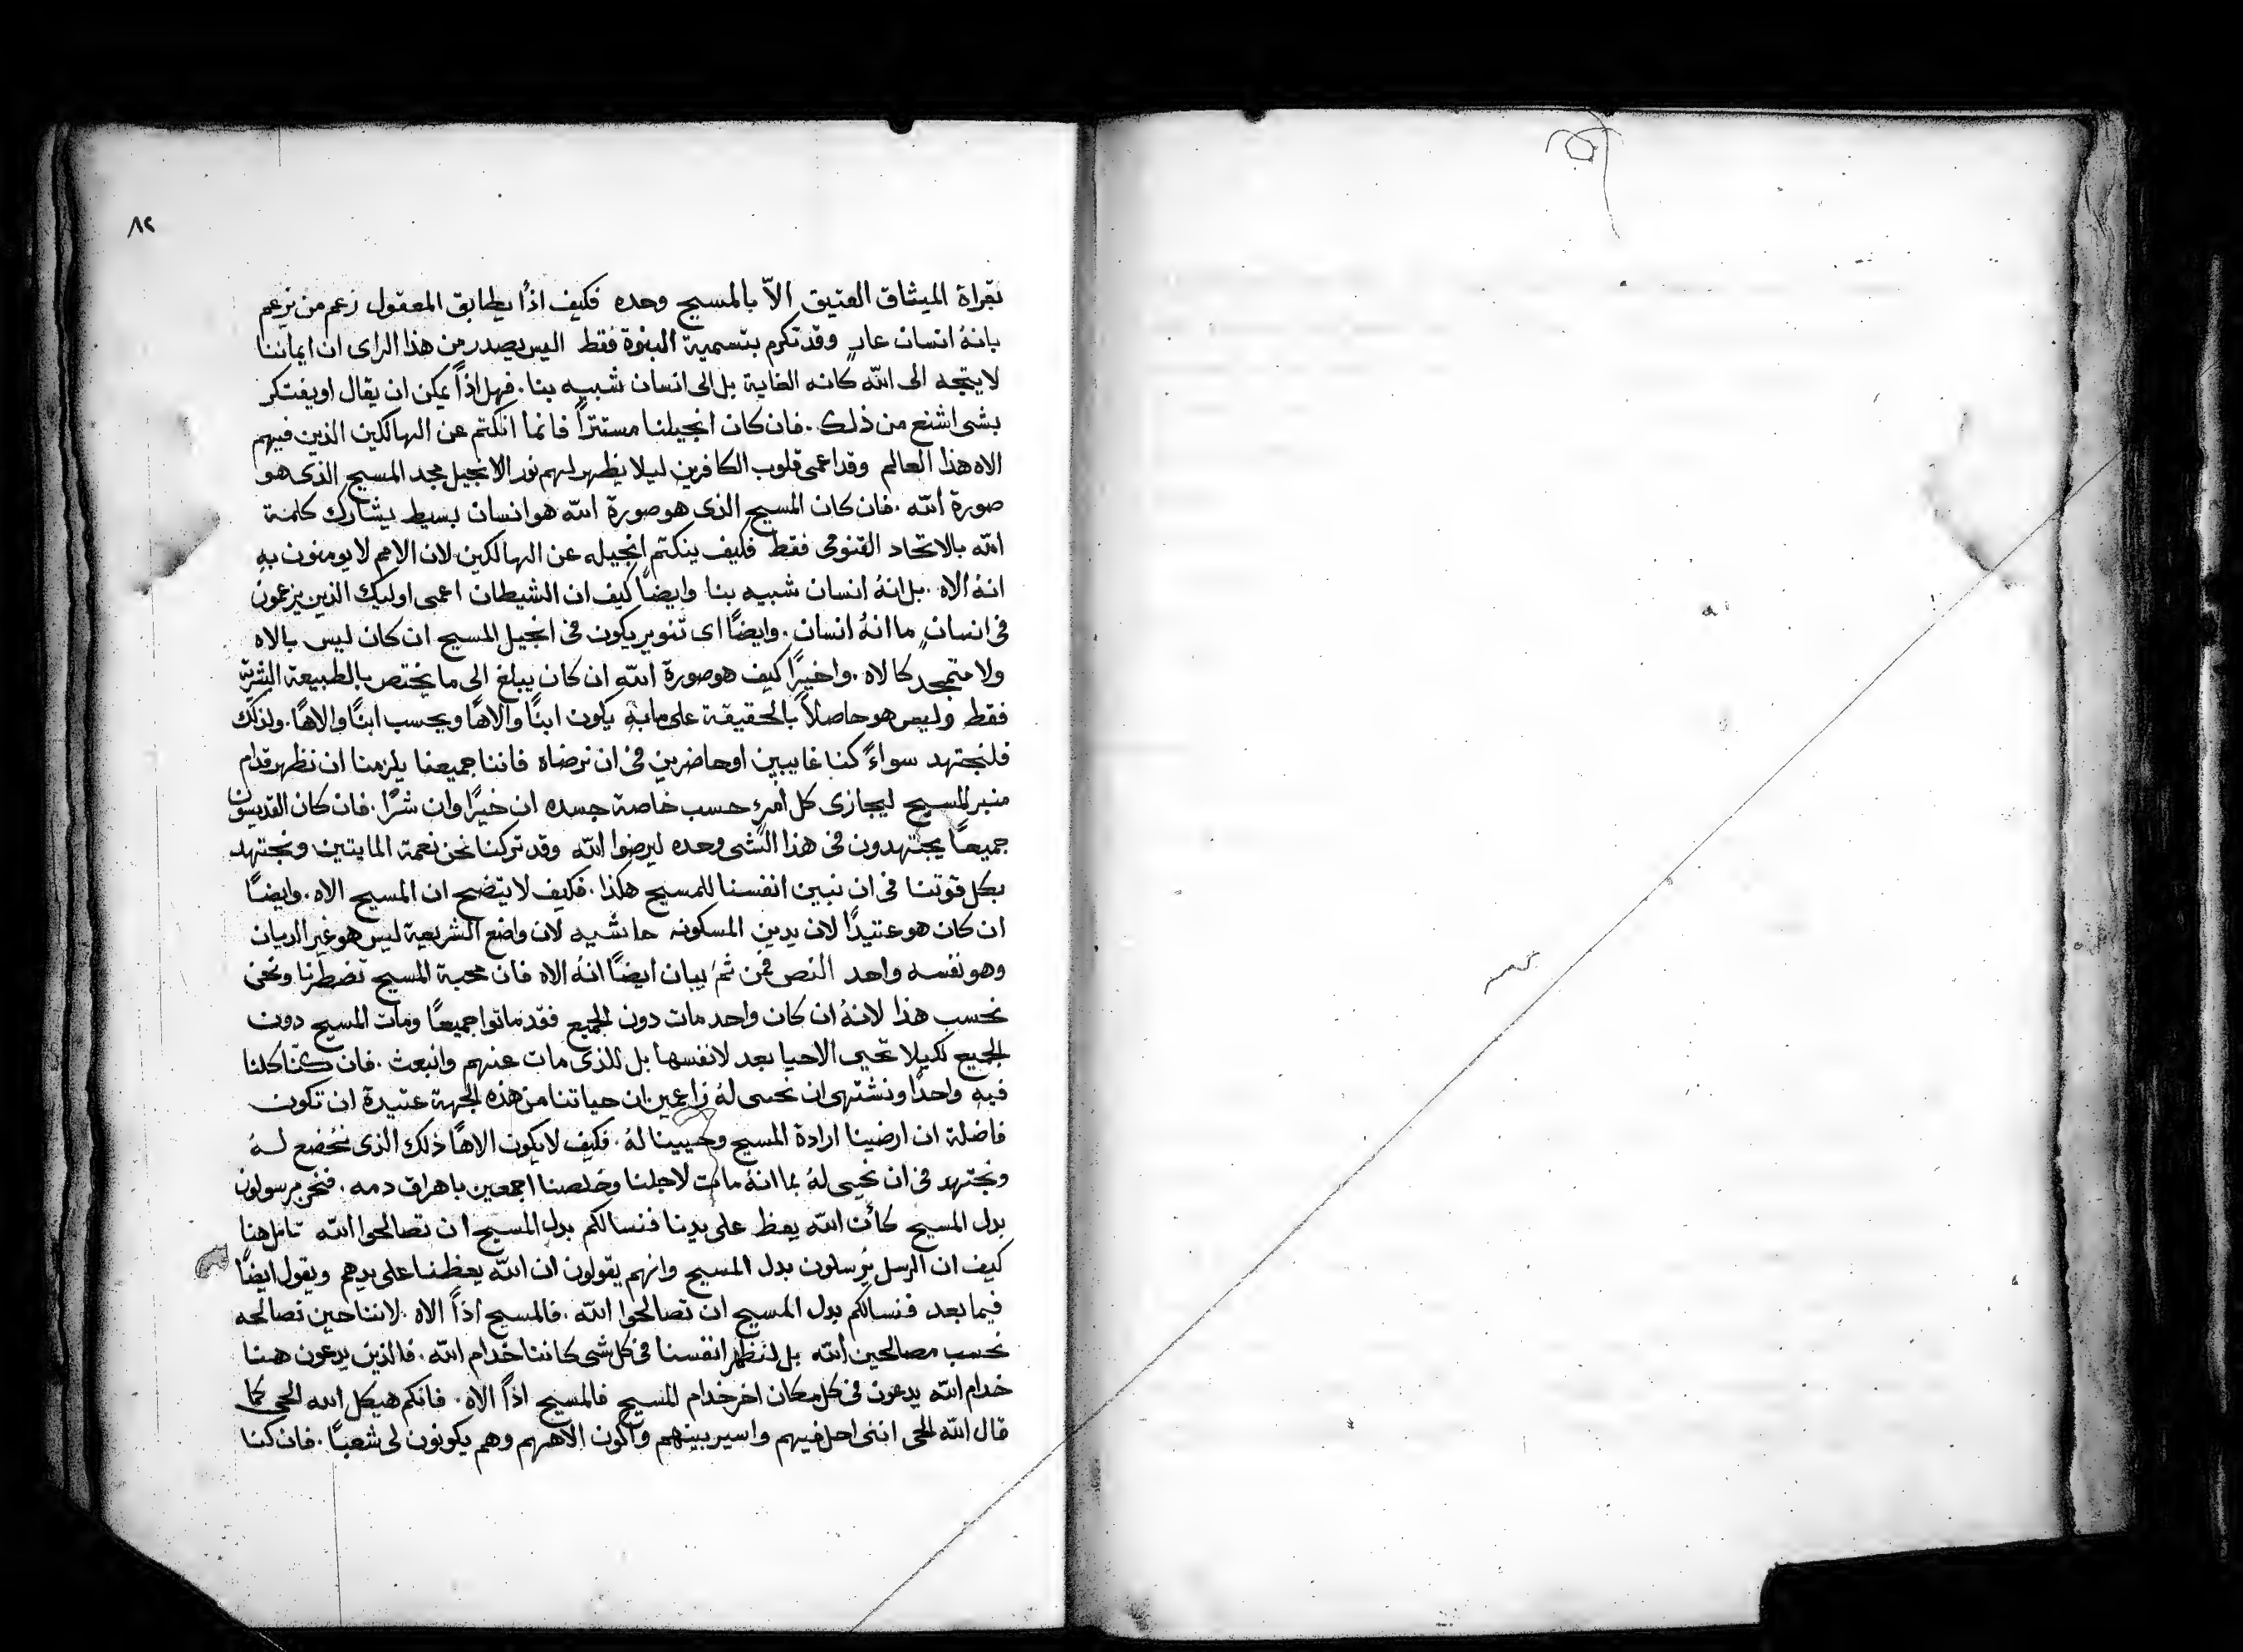 ٨٢
بقراة الميثاق العتيق الاّ بالمسيح وحده فكيف اذًا يطابق المعقول زعم من يزعم
بانهُ انسان عادٍ وقد تكرم بتسمية البنوة فقط اليس يصدر من هذا الراى ان ايماننا
لا يتجه الى الله كانه الغاية بل الى انسان شبيه بنا . فهل اذاً يمكن ان يقال او يفتكر
بشى اشنع من ذلك . فان كان انجيلنا مستتراً فانما انكتم عن الهالكين الذين فيهم
الاه هذا العالم وقد اعمى قلوب الكافرين ليلا يظهر لهم نور الانجيل مجد المسيح الذى هو
صورة الله . فان كان المسيح الذى هو صورة الله هو انسان بسيط يشارك كلمة
الله بالاتحاد القنومى فقط فكيف ينكتم انجيله عن الهالكين لان الامم لا يومنون بهِ
انهُ الاه . بل انهُ انسان شبيه بنا وايضاً كيف ان الشيطان اعمى اوليك الذين يزعمون
فى انسانٍ ما انهُ انسان . وايضًا اى تنوير يكون فى انجيل المسيح ان كان ليس بالاه
ولا متمجد كالاه . واخيرًا كيف هو صورة الله ان كان يبلغ الى ما يختص بالطبيعة البشرية
فقط وليس هو حاصلاً بالحقيقة على ما بهِ يكون ابنًا والاهًا ويحسب ابنًا والاهًا . ولذلك
فلنجتهد سواءً كنا غايبين او حاضرين فى ان نرضاه فاننا جميعنا يلزمنا ان نظهر قدام
منبر المسيح ليجازى كل امرءٍ حسب خاصة جسده ان خيرًا وان شرًا . فان كان القديسون
جميعًا يجتهدون فى هذا الشى وحده ليرضوا الله وقد تركنا نحن نعمة المايتين ونجتهد
بكل قوتنا فى ان نبين انفسنا للمسيح هكذا . فكيف لا يتضح ان المسيح الاه . وايضًا
ان كان هو عتيدًا لان يدين المسكونه لان واضع الشريعة ليس هو غير الديان
وهو نفسه واحد النص فمن ثمَ يبان ايضًا انهُ الاه فان محبة المسيح تضطرنا ونحن
نحسب هذا لانهُ ان كان واحد مات دون الجميع فقد ماتوا جميعًا ومات المسيح دون
الجميع لكيلا تحيى الاحيا بعد لانفسها بل للذى مات عنهم وانبعث . فان كنّا كلنا
فيهِ واحدًا ونشتهى ان نحيى لهُ زاعمين ان حياتنا من هذه الجهة عتيدة ان تكون
فاضلة ان ارضينا ارادة المسيح وحيينا لهُ . فكيف لا يكون الاهًا ذلك الذى نخضع لهُ
ونجتهد فى ان نحيى لهُ بما انهُ مات لاجلنا وخلصنا اجمعين باهراق دمه . فنحن مرسولون
بدل المسيح كأن الله يعظ على يدنا فنسالكم بدل المسيح ان تصالحوا الله تامل هنا
كيف ان الرسل يُرسلون بدل المسيح وانهم يقولون ان الله يعظنا على يدهم ويقول ايضًا
فيما بعد فنسالكم بدل المسيح ان تصالحوا الله . فالمسيح اذاً الاه . لاننا حين نصالحه
نحسب مصالحين الله بل لنظهر انفسنا فى كل شى كاننا خدام الله . فالذين يدعون هنا
خدام الله يدعون فى كل مكان اخر خدام المسيح فالمسيح اذاً الاه . فانكم هيكل الله الحى كما
قال الله الحى اننى احل فيهم واسير بينهم واكون الاههم وهم يكونون لى شعبًا . فان كنا